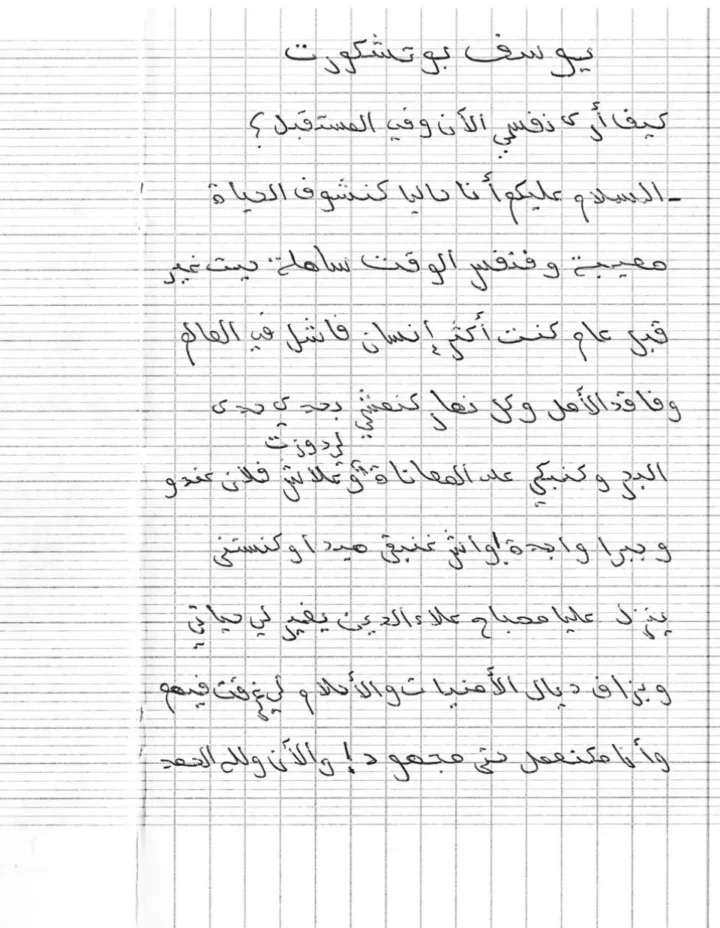 يوسف بوتشكورت
كيف أرى نفسي الآن وفي المستقبل؟
- السلام عليكم أنا حاليا كنشوف الحياة
صعيبة وفنفس الوقت ساهلة، حيت غير
قبل عام كنت أكثر إنسان فاشل في العالم
وفاقد الأمل وكل نهار كنمشي بحدي حدى
لي دوزت
البحر وكنبكي على المعاناة وعلاش فلان عندو
وبيرا واحدة! واش غنبقى هيدا وكنستنى
ينزل عليا مصباح علاء الدين يغير لي حياتي
وبزاف ديال الأمنيات والأحلام لي غرقت فيهم
وأنا مكنعمل حتى مجهود! والآن ولله الحمد